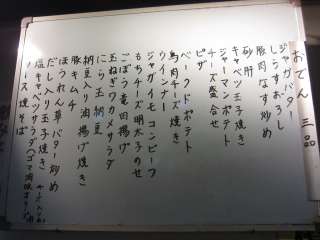 おでん 三品
ジャガバター
しらすおろし
豚肉なす炒め
砂肝
キャベツ玉子焼き
ジャーマンポテト
チーズ盛合せ
ピザ
ベークドポテト
鳥肉チーズ焼き
ウインナー
ジャガイモコンビーフ
もちチーズ明太子のせ
ごぼう竜田揚げ
玉ねぎワカメサラダ
にら玉納豆
納豆入り油揚げ焼き
豚キムチ
ほうれん草バター炒め
だし入り玉子焼き
塩キャベツサラダ
ソース焼そば